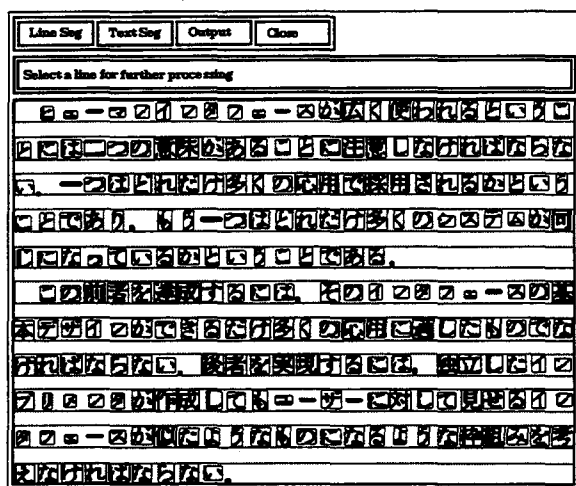 Line Seg Text Seg Output Close
Select a line for further processing
ヒューマンインタフェースが広く使われるということ
とには二つの意味があることに注意しなければならな
い。一つはどれだけ多くの応用で採用されるかという
ことであり、もう一つはどれだけ多くのシステムが同
じになっているかということである。
この前者を達成するには、そのインタフェースの基
本デザインができるだけ多くの応用に適したものでな
ければならない。後者を実現するには、独立したイン
プリメンタが作成してもユーザーに対して見せるイン
タフェースが似たようなものになるような枠組みを考
えなければならない。